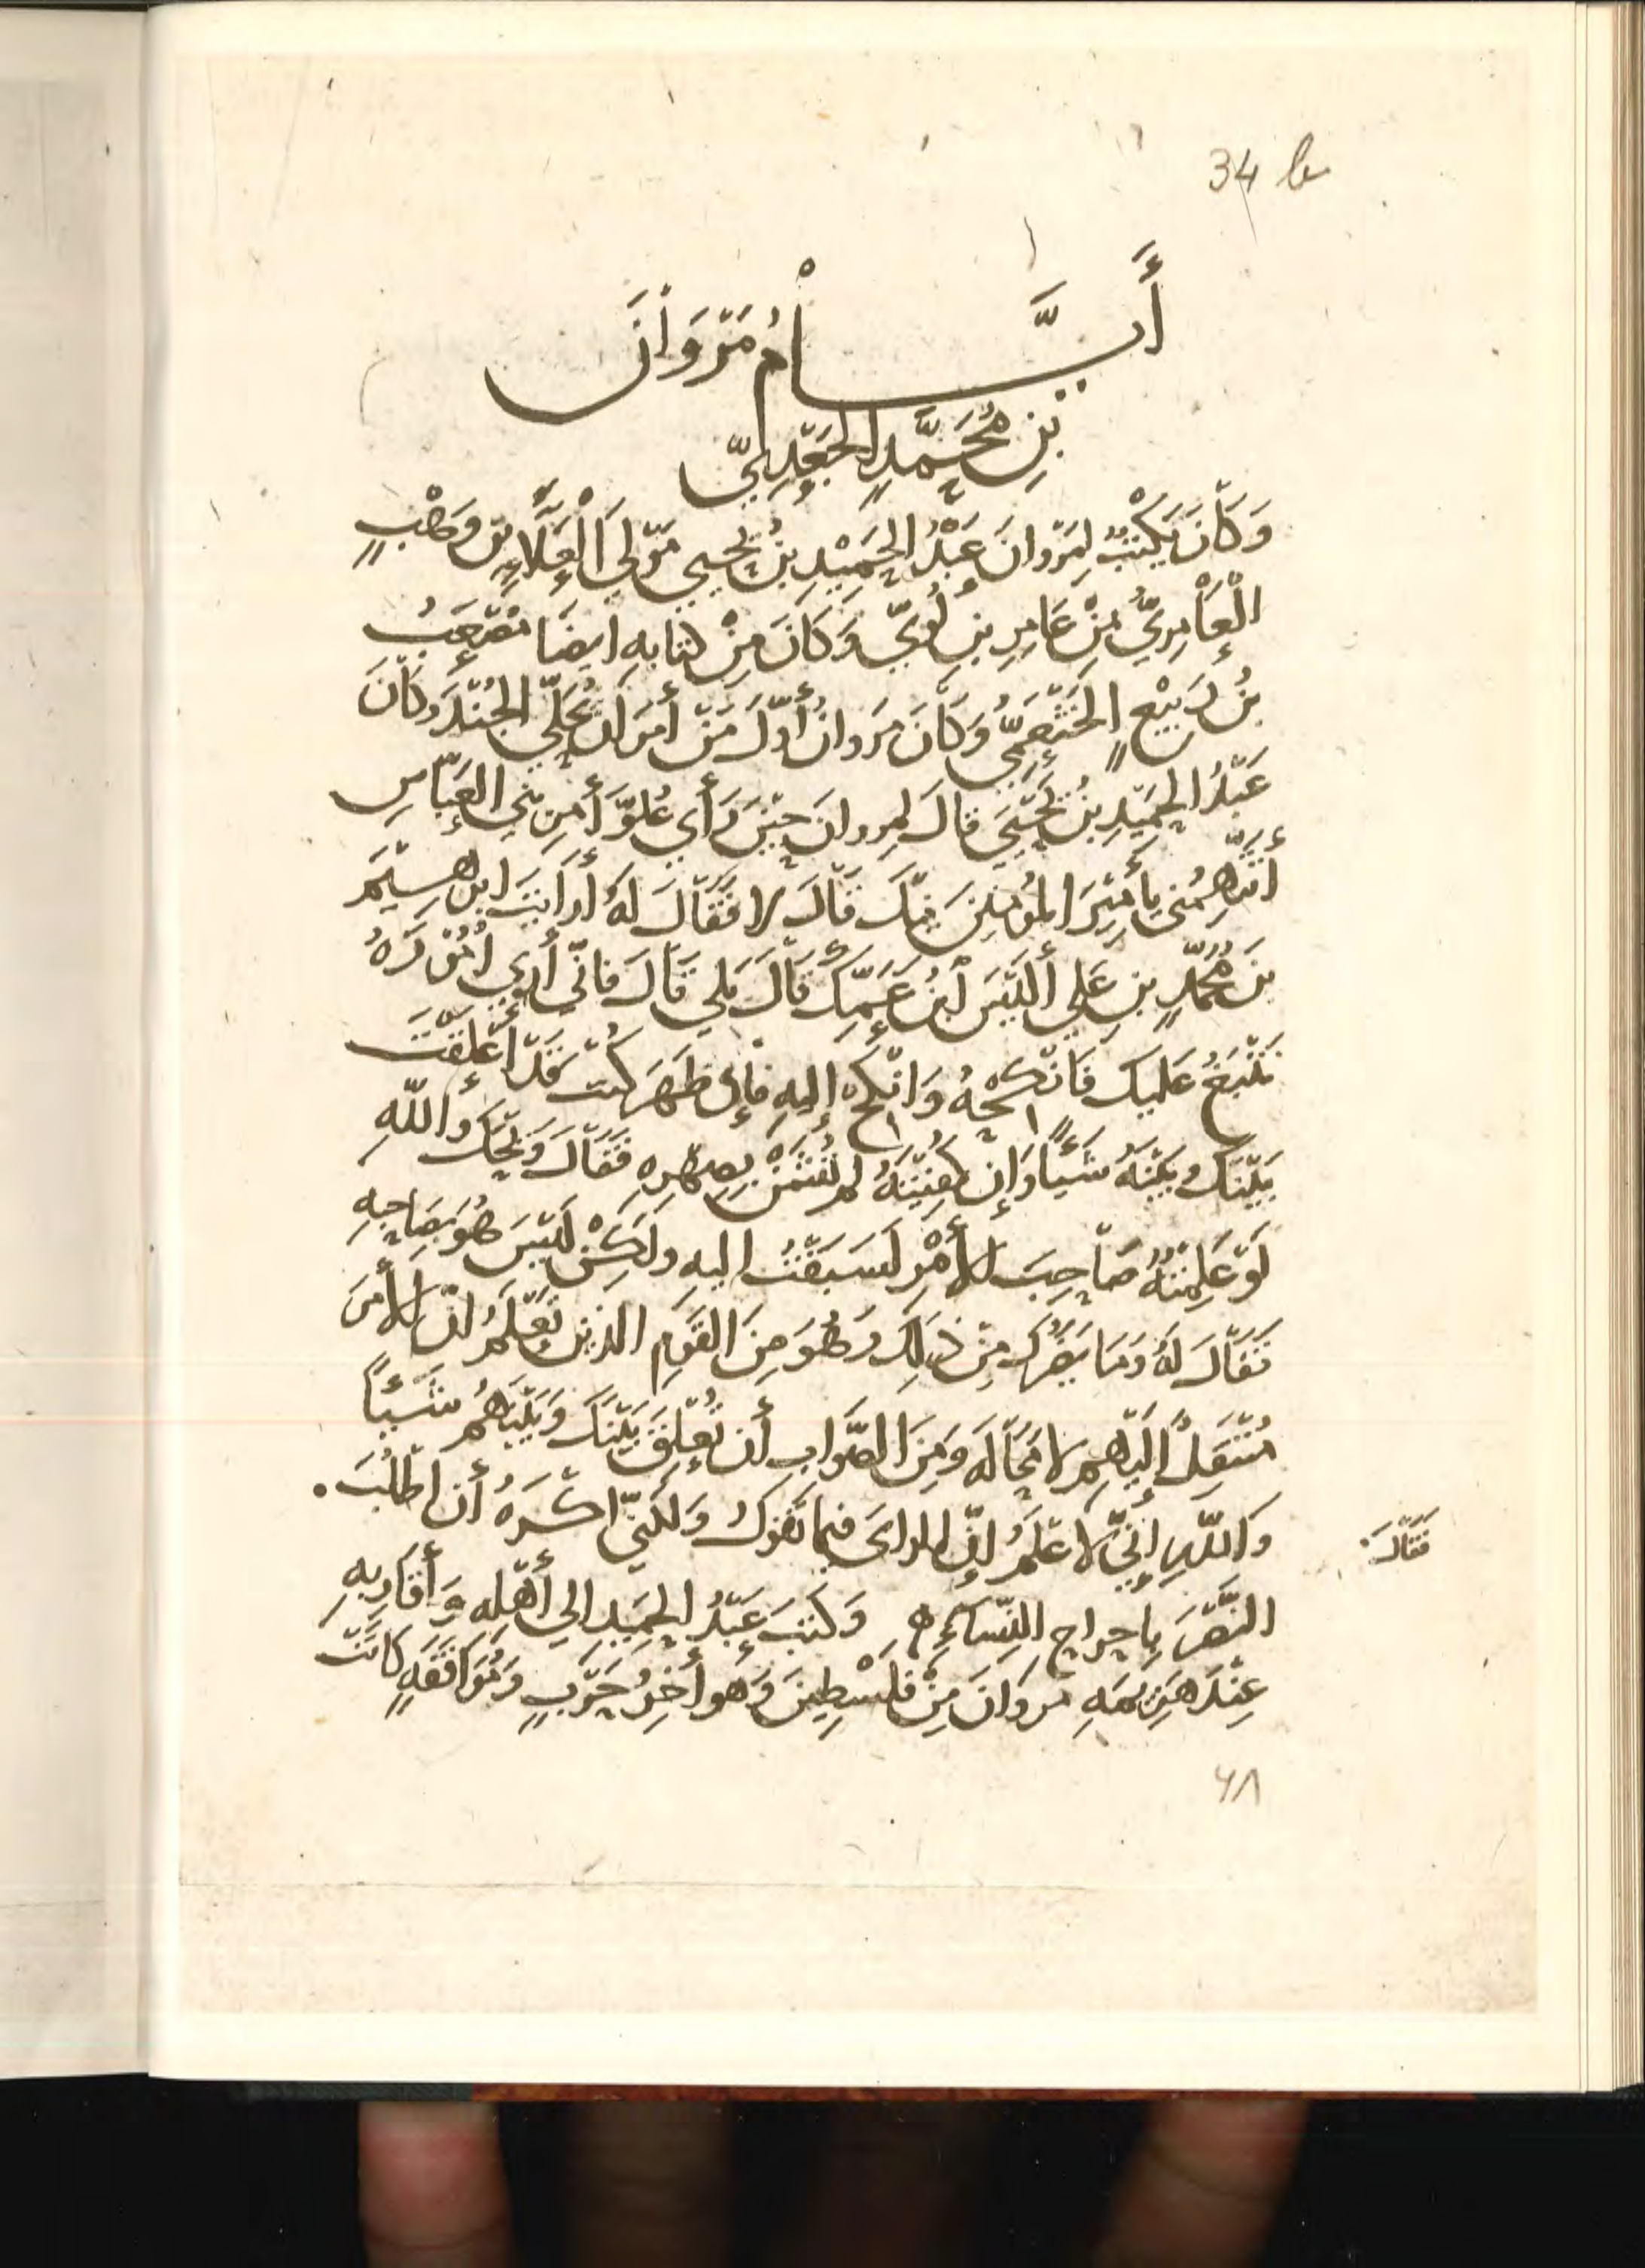 34 b
أَيَّامُ مَرْوَانَ
بْنِ مُحَمَّدٍ الجَعْدِيِّ
وَكَانَ يَكْتُبُ لِمَرْوَانَ عَبْدُ الحَمِيْدِ بْنُ يَحيى مَوْلَى الْعَلَاءِ بْنِ وَهْبٍ
الْعَامِرِيُّ مِنْ عَامِرِ بنِ لُؤيّ وَكَانَ مِنْ كتابِهِ ايضَا مُصْعَبُ
بنُ رَبِيْعٍ الخَثْعَمِيُّ وَكَانَ مَروانُ أَوَّلَ مَنْ أَمَرَ ان يُحَلِّي الجُنْدَ وَكَانَ
عَبْدُ الحَمِيْدِ بْنُ يَحْيَي قَالَ لمروانَ حِيْنَ رَأَي عُلُوَّ أَمِرِ بَنِي العَبَّاسِ
أَتَتَّهِمُنِي يأَمِيْرَ المُؤمنينَ فيك قَالَ لا فَقَالَ لَهُ أَرَايتَ ابْرهيمَ
بنَ مُحَمَّدٍ بنِ عَلِي أَلَيْسَ ابْنُ عَمِّكَ قَالَ بَلي قَالَ فانّي أَرَي أُمُورَهُ
تَنْبَغُ عليك فَانْكِحْهُ وَانْكِحْ إليهِ فإن ظَهَرَ كُنت قَدْ أَعْلَقْتَ
بَيْنَكَ وَبَيْنَهُ شَيْئًا وَإن كُفِيْتَهُ لم تُشَنْ بصِهْرِهِ فَقَالَ وَيْحَكَ وَاللّهِ
لَوْ عَلِمْتُهُ صَاحِبَ الأَمْرِ لَسَبَقْتُ اليهِ ولَكِنْ لَيْسَ هُوَ بصَاحِبِهِ
فَقَالَ لَهُ وَمَا يَضُرُّكَ مِنْ ذَلِكَ وَهُوَ مِنَ القَوْمِ الذين تَعْلَمُ انّ الأَمرَ
مُنْتَقِلٌ إِلَيْهِم لا مَحَالَه وَمِنَ الصَّوَابِ أَن تُعْلِقَ بَيْنَكَ وَبَيْنَهُم شَيْئًا
فَقَالَ
وَاللّهِ إِنّي لاعْلَمُ إنّ الرايَ فيما تَقولُ وَلكنّي اكْرَهُ أَن اطْلُبَ
النَّصْرَ بِاحراج النِّسَاءِ ه وَكَتَبَ عَبْدُ الحَمِيدِ الي أَهْلِهِ وَأَقَارِبِهِ
عِنْدَ هَزِيمَهِ مروَانَ مِنْ فَلَسْطِينَ وَهو أَخِرُ حَرْبٍ وَمُوَاقَفَهٍ كَانَتْ
٦٨